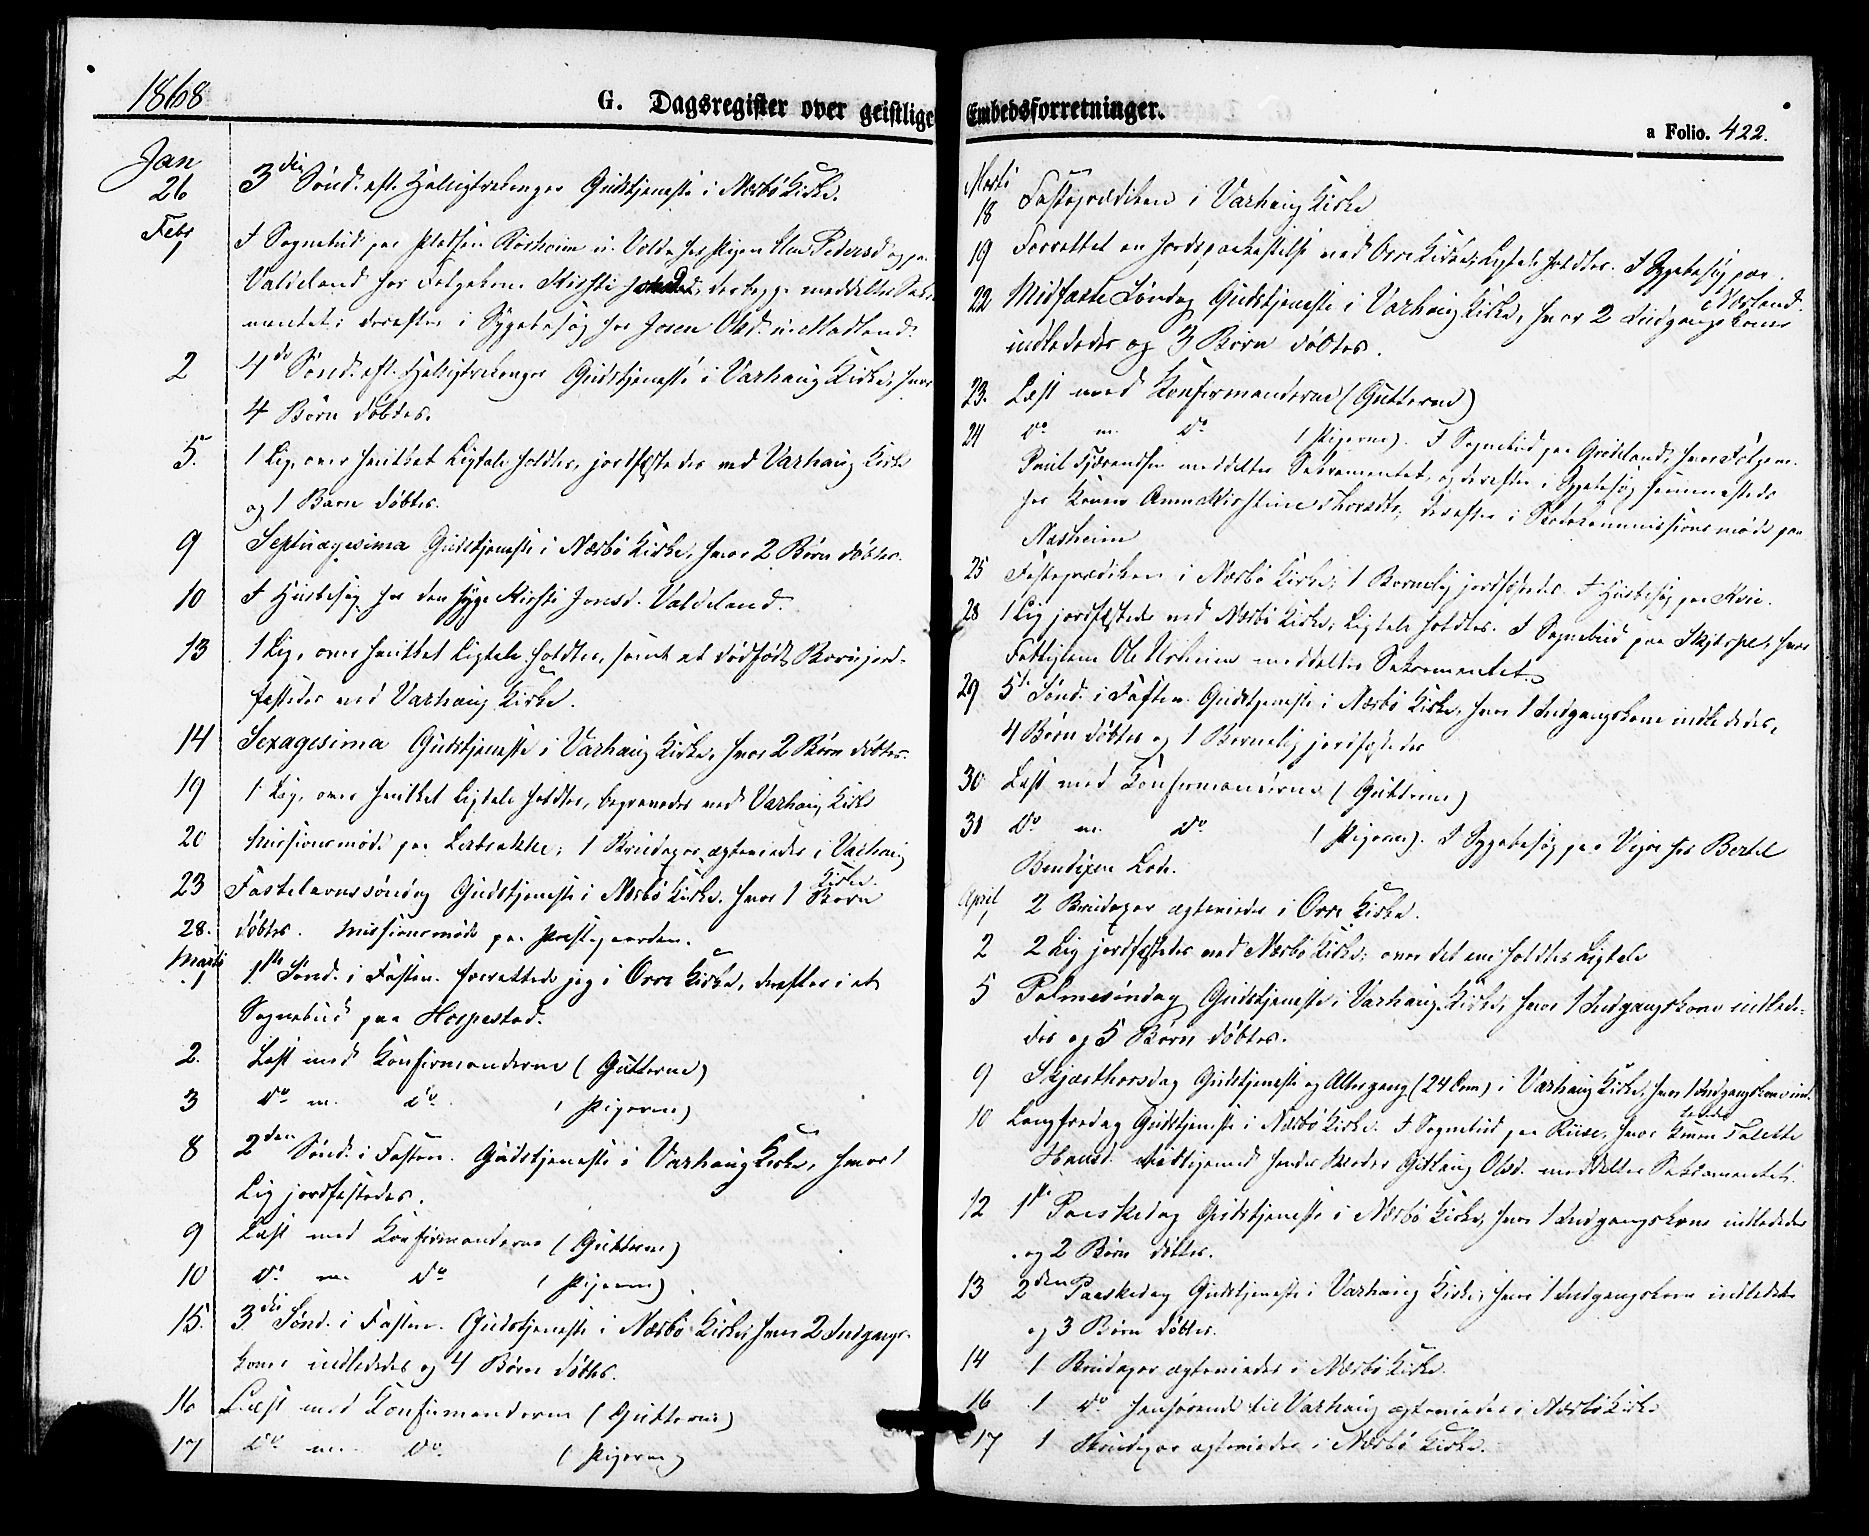 1868
G. Dagsregister over geistlige
Jan
26 3die Sønd. eft. Helligtrekonger Gudstjeneste i Nærbø Kirke.
Febr
1 I Sognebud paa Pladsen Rosheim u. Volde hos Pigen Pedersd og paa
Valdeland hos Følgekone Kirsti der begge meddeltes Sakra-
mentet; derefter i Sygebesøg hos Olsd. Madland.
2 4de Sønd. eft. Helligtrekonger Gudstjeneste i Varhaug Kirke, hvor
4 Børn døbtes.
5. 1 Lig, over hvilket Ligtale holdtes, jordfæstedes ved Varhaug Kirke
og 1 Barn døbtes.
9 Septuagesima Gudstjeneste i Nærbø Kirke, hvor 2 Børn døbtes.
10 I Husbesøg hos den syge Kirsti Jonsd. Valdeland.
13 1 Lig, over hvilket Ligtale holdtes, samt et dødfødt Barn jord-
fæstedes ved Varhaug Kirke.
14 Sexagesima Gudstjeneste i Varhaug Kirke, hvor 2 Børn døbtes.
19 1 Lig, over hvilket Ligtale holdtes, begravedes ved Varhaug Kirke
20 Missionsmøde paa Lerbrække; 1 Brudepar ægteviedes i Varhaug
Kirke.
23 Fastelavnssøndag Gudstjeneste i Nærbø Kirke, hvor 1 Barn
28. døbtes. Missionsmøde paa Præstegaarden.
Marts
1 1ste Sønd. i Fasten. forrettede jeg i Orre Kirke, derefter i et
Sognebud paa Hognestad.
2. Læst med Konfirmanderne (Gutterne)
3 do m. do (Pigerne)
8 2den Sønd. i Fasten. Gudstjeneste i Varhaug Kirke, hvor 1
Lig jordfæstedes.
9 Læst med Konfirmanderne (Gutterne)
10 do m. do (Pigerne)
15. 3die Sønd. i Fasten. Gudstjeneste i Nærbø Kirke, hvor 2 Indgangs-
koner indlededes og 4 Børn døbtes.
16 Læst med Konfirmanderne (Gutterne)
17 do m. do (Pigerne)
Embedsforretninger.
a Folio. 422.
Marts
18 Fasteprædiken i Varhaug Kirke
19 Forrettet en Jordspaakastelse ved Orre Kirke, Ligtale holdtes. I Sygebesøg paa
Nærland.
22 Midfaste Søndag Gudstjeneste i Varhaug Kirke, hvor 2 Indgangskoner
indlededes og 3 Børn døbtes.
23. Læst med Konfirmanderne (Gutterne)
24 do m. do (Pigerne). I Sognebud paa Grødeland, hvor Følgem.
Poul meddeltes Sakramentet, og derefter i Sygebesøg sammesteds
hos Konen Anne Kirstine Thorsdtr, derefter i Skolekommissionsmøde paa
Næsheim
25 Fasteprædiken i Nærbø Kirke; 1 Barnelig jordfæstedes. I Husbesøg paa Kvie.
28 1 Lig jordfæstedes ved Nærbø Kirke, Ligtale holdtes. I Sognebud paa hvor
Fattiglem Ole meddeltes Sakramentet.
29 5te Sønd. i Fasten. Gudstjeneste i Nærbø Kirke, hvor 1 Indgangskone indlededes,
4 Børn døbtes og 1 Barnelig jordfæstedes
30 Læst med Konfirmanderne (Gutterne)
31 do m. do (Pigerne). I Sygebesøg paa Vigre hos Bertel
Bendixen Lode.
April
1 2 Brudepar ægteviedes i Orre Kirke.
2 2 Lig jordfæstedes ved Nærbø Kirke; over det ene holdtes Ligtale
5 Palmesøndag Gudstjeneste i Varhaug Kirke, hvor 1 Indgangskone indlede-
des og 5 Børn døbtes.
9 Skjærthorsdag Gudstjeneste og Altergang (24 Com) i Varhaug Kirke, hvor 1 Indgangskone ind-
lededes
10 Langfredag Gudstjeneste i Nærbø Kirke. I Sognebud paa hvor Konen
Hansd. tilligemed hendes Moder Gitlaug Olsd. meddeltes Sakramentet.
12 1ste Paaskedag Gudstjeneste i Nærbø Kirke, hvor 1 Indgangskone indlededes
og 2 Børn døbtes.
13 2den Paaskedag Gudstjeneste i Varhaug Kirke, hvor 1 Indgangskone indlededes
og 3 Børn døbtes.
14 1 Brudepar ægteviedes i Nærbø Kirke.
16 1 do henhørende til Varhaug ægteviedes i Nærbø Kirke
17 1 Brudepar ægteviedes i Nærbø Kirke.